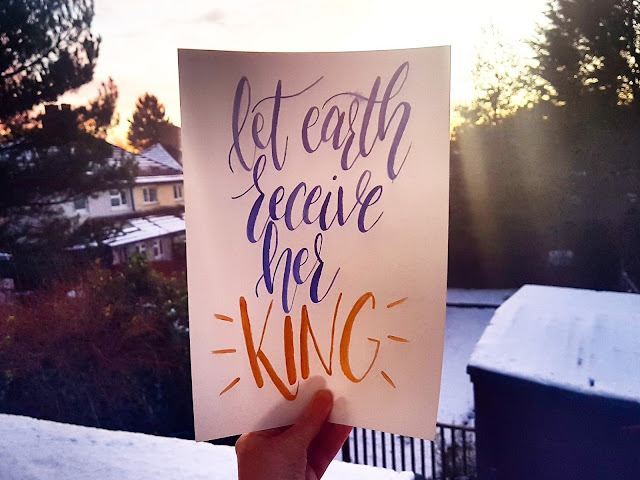 let earth
receive
her
KING